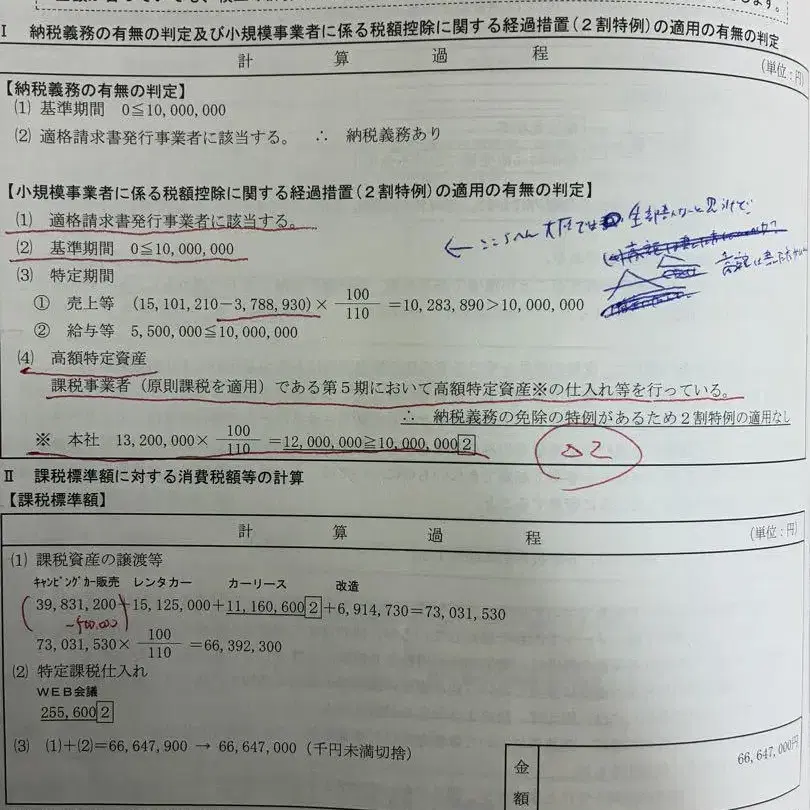 Ⅰ 納税義務の有無の判定及び小規模事業者に係る税額控除に関する経過措置(2割特例)の適用の有無の判定
計 算 過 程 (単位:円)
【納税義務の有無の判定】
(1) 基準期間 0≦10,000,000
(2) 適格請求書発行事業者に該当する。 ∴ 納税義務あり
【小規模事業者に係る税額控除に関する経過措置(2割特例)の適用の有無の判定】
(1) 適格請求書発行事業者に該当する。
← ここらへん 大原では 全部書くと
(2) 基準期間 0≦10,000,000
(3) 特定期間
① 売上等 (15,101,210-3,788,930)×100/110=10,283,890>10,000,000
② 給与等 5,500,000≦10,000,000
(4) 高額特定資産
課税事業者(原則課税を適用)である第5期において高額特定資産※の仕入れ等を行っている。
∴ 納税義務の免除の特例があるため2割特例の適用なし
※ 本社 13,200,000×100/110=12,000,000≧10,000,000 2
△2
Ⅱ 課税標準額に対する消費税額等の計算
【課税標準額】
計 算 過 程 (単位:円)
(1) 課税資産の譲渡等
キャンピングカー販売 レンタカー カーリース 改造
39,831,200+15,125,000+11,160,600 2+6,914,730=73,031,530
-500,000
73,031,530×100/110=66,392,300
(2) 特定課税仕入れ
WEB会議
255,600 2
(3) (1)+(2)=66,647,900 → 66,647,000(千円未満切捨)
金額
66,647,000円